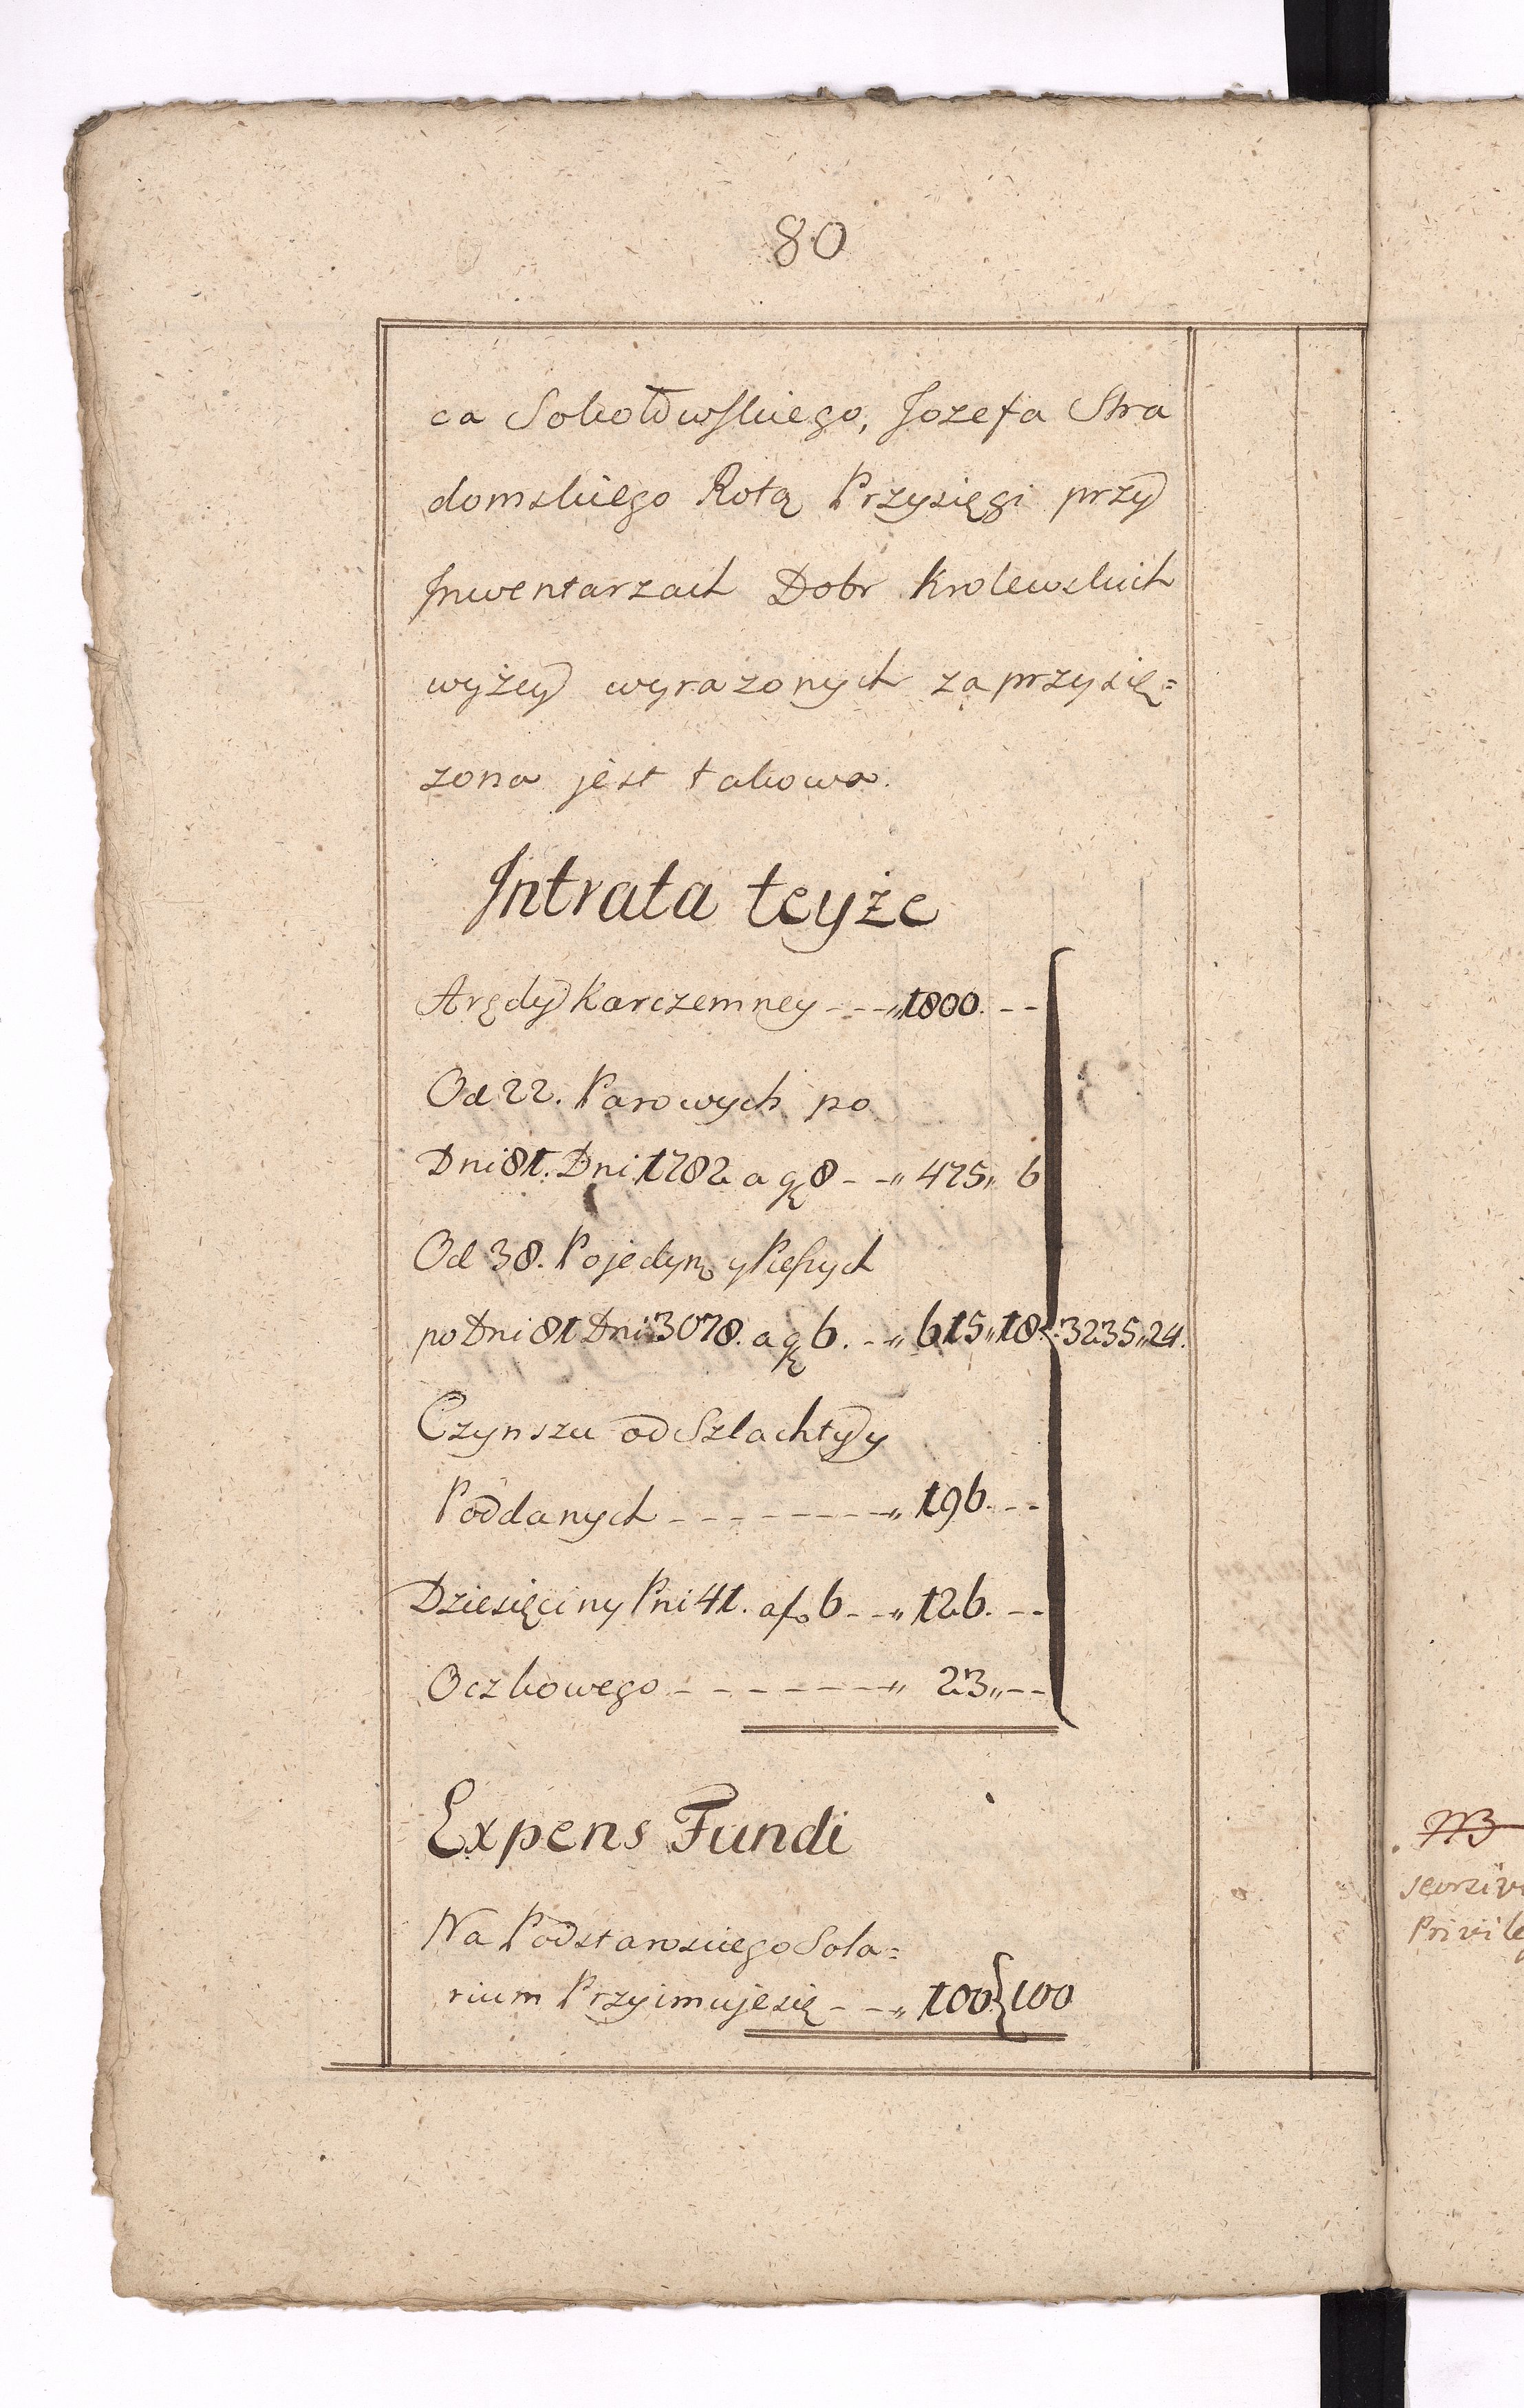 80
ca Sokołowskiego, Jozefa Stra
domskiego Rotą Przysięgi przy
Jnwentarzach Dobr Krolewskich
wyżey wyrazonych zaprzysię=
zona jest takowa.
Jntrata teyże
Arędy Karczemney - - - „ 1800. - -
Od 22. Parowych po
Dni 81. Dni 1782 a gę 8 - - „ 475 „ 6
Od 38. Pojedyn. y Pieszych
po Dni 81 Dni 3078. a gę 6. - - „ 615 „ 18. 3235 „ 24.
Czynszu od Szlachty y
Poddanych - - - - - - - - „ 196. - -
Dziesięciny Pni 41. a fo 6 - - „ 126. - -
Oczkowego - - - - - - - „ 23 „ - -
Expens Fundi
Na Podstarosciego Sola=
rium Przyimuje się - - „ 100 } 100
NB
seorsiv
Privile